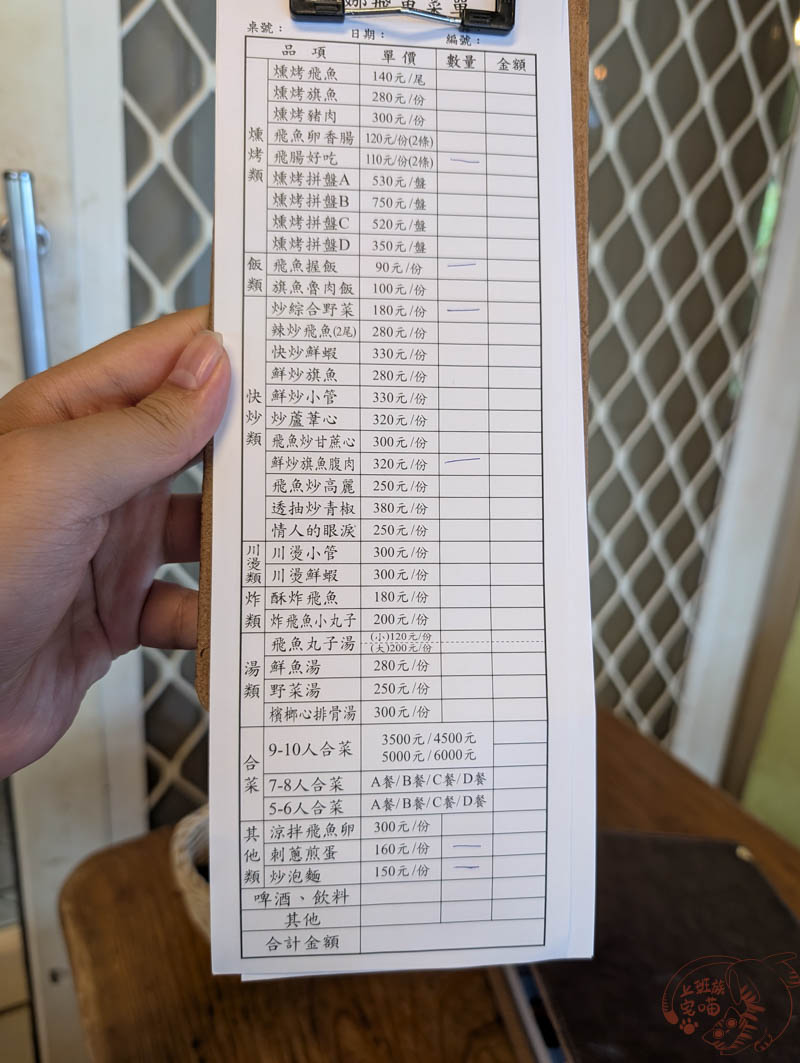 飛魚菜單
桌號： 日期： 編號：
品項 單價 數量 金額
燻烤類
燻烤飛魚 140元/尾
燻烤旗魚 280元/份
燻烤豬肉 300元/份
飛魚卵香腸 120元/份(2條)
飛腸好吃 110元/份(2條) 一
燻烤拼盤A 530元/盤
燻烤拼盤B 750元/盤
燻烤拼盤C 520元/盤
燻烤拼盤D 350元/盤
飯類
飛魚握飯 90元/份 一
旗魚魯肉飯 100元/份
快炒類
炒綜合野菜 180元/份 一
辣炒飛魚(2尾) 280元/份
快炒鮮蝦 330元/份
鮮炒旗魚 280元/份
鮮炒小管 330元/份
炒蘆葦心 320元/份
飛魚炒甘蔗心 300元/份
鮮炒旗魚腹肉 320元/份 一
飛魚炒高麗 250元/份
透抽炒青椒 380元/份
情人的眼淚 250元/份
川燙類
川燙小管 300元/份
川燙鮮蝦 300元/份
炸類
酥炸飛魚 180元/份
炸飛魚小丸子 200元/份
湯類
飛魚丸子湯 (小)120元/份
(大)200元/份
鮮魚湯 280元/份
野菜湯 250元/份
檳榔心排骨湯 300元/份
合菜
9-10人合菜 3500元/4500元
5000元/6000元
7-8人合菜 A餐/B餐/C餐/D餐
5-6人合菜 A餐/B餐/C餐/D餐
其他類
涼拌飛魚卵 300元/份
刺蔥煎蛋 160元/份 一
炒泡麵 150元/份 一
啤酒、飲料
其他
合計金額
上班族
宅喵